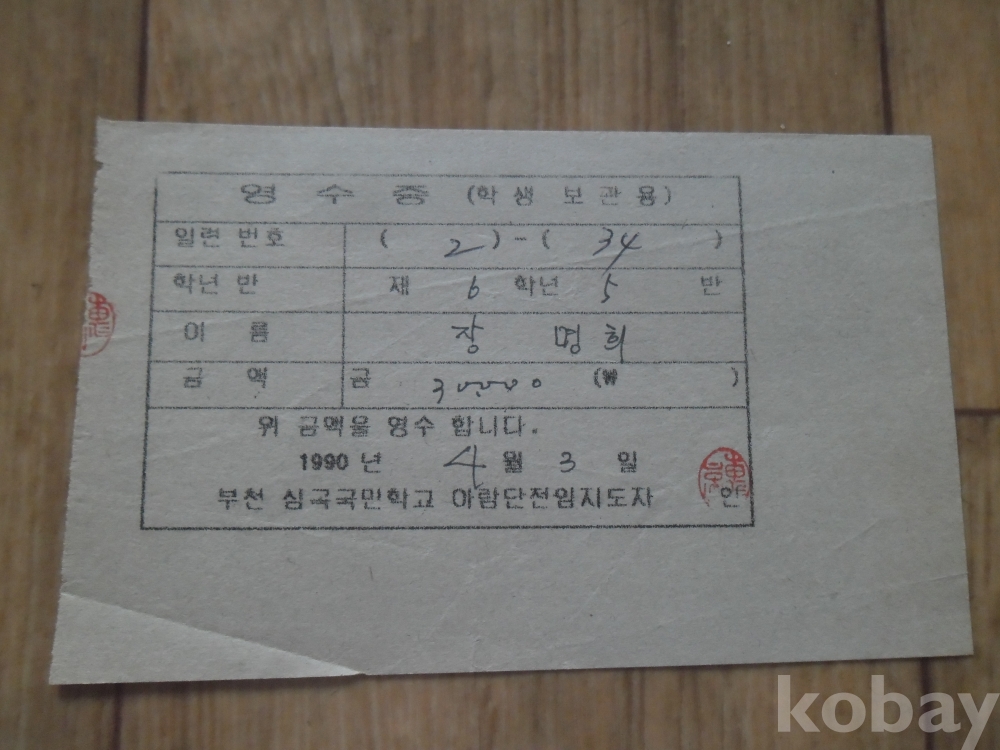 영수증 (학생 보관용)
일련 번호 ( 2 ) - ( 34 )
학년 반 제 6 학년 5 반
이 름 장 명희
금 액 금 30000 (₩ )
위 금액을 영수 합니다.
1990 년 4 월 3 일
부천 심곡국민학교 아람단전임지도자 인
kobay